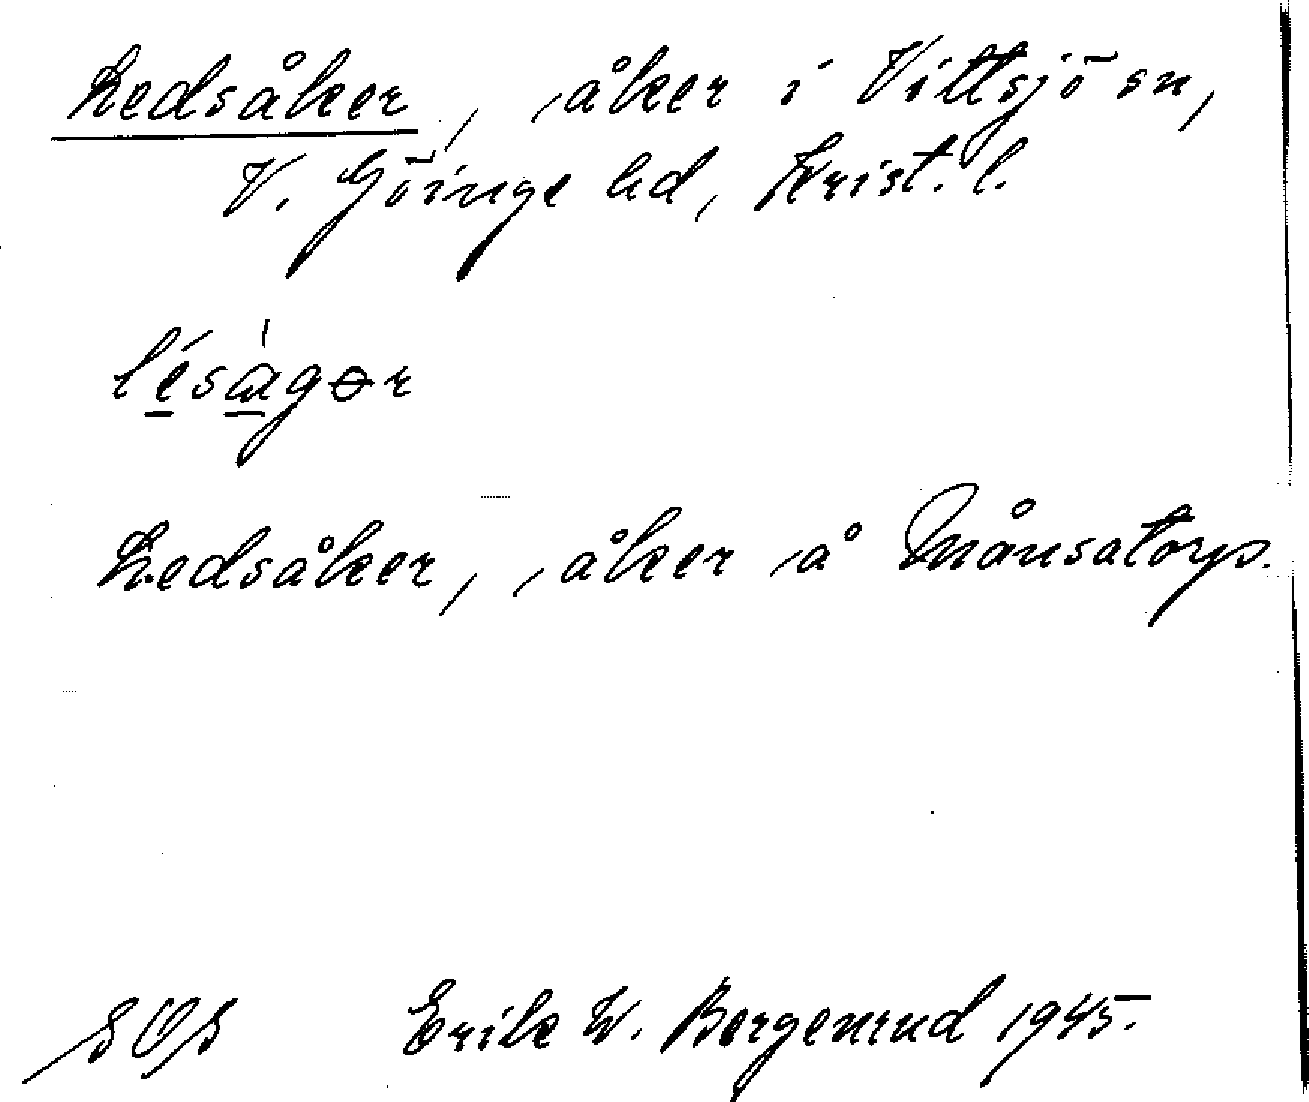 Ledsåker, åker i Vittsjö sn,
V. Göinge hd, Krist. l.
lésàgər
Ledsåker, åker å Månsatorp.
SOS Erik W. Bergenrud 1945.